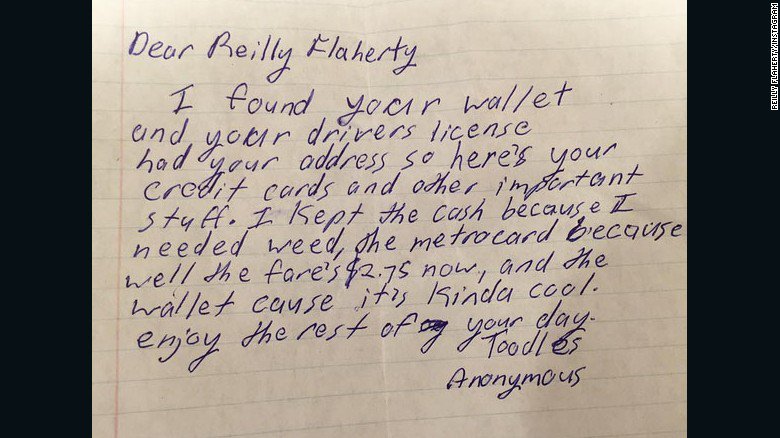 Dear Reilly Flaherty
I found your wallet
and your drivers license
had your address so here's your
credit cards and other important
stuff. I kept the cash because I
needed weed, the metrocard because
well the fare's $2.75 now, and the
wallet cause it's kinda cool.
enjoy the rest of your day.
Toodles
Anonymous
REILLY FLAHERTY/INSTAGRAM